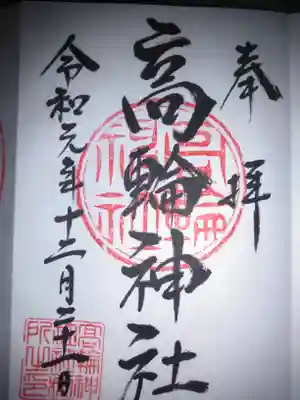 奉拝
高輪神社
令和元年十二月二十一日
高輪神社